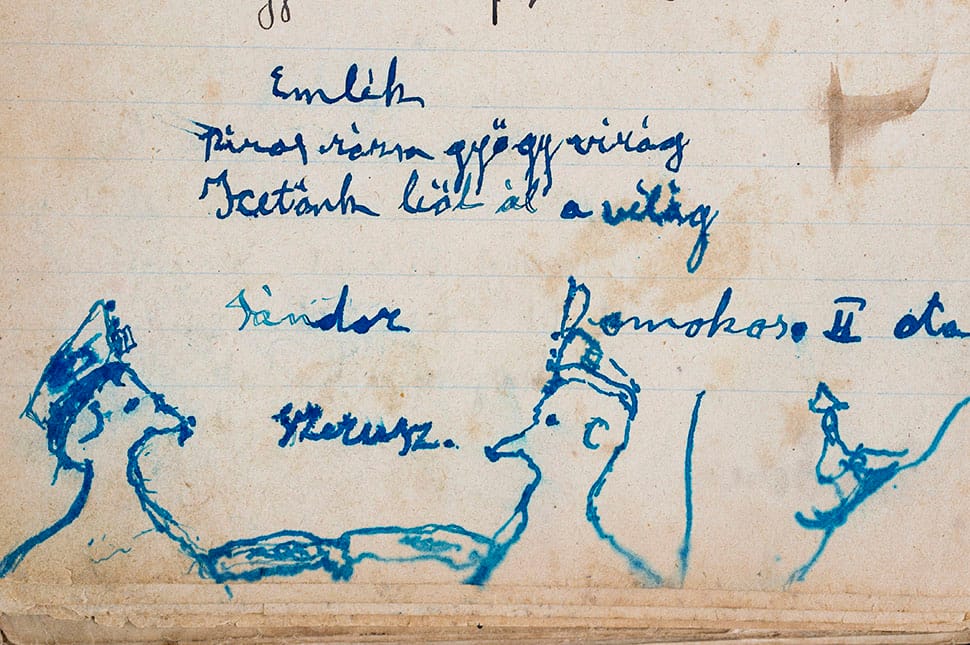 Emlék
Piros rózsa gyögy virág
Icetönk
a világ
Sándor Domokos. II
Szerusz.